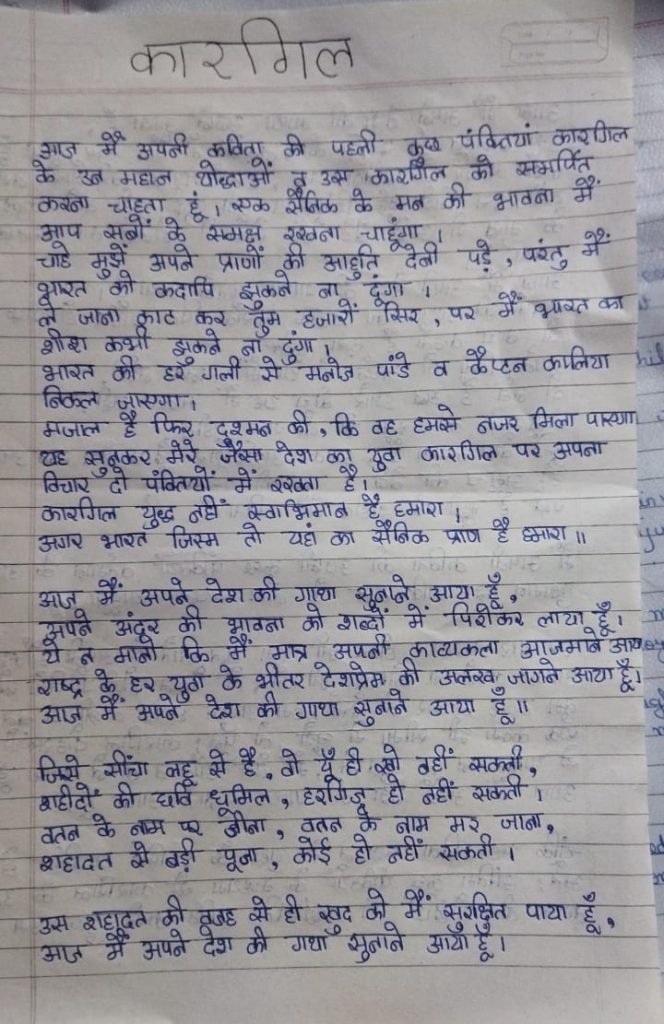 कारगिल
आज मैं अपनी कविता की पहली कुछ पंक्तियां कारगिल
के उन महान योद्धाओं व उस कारगिल को समर्पित
करना चाहता हूं। एक सैनिक के मन की भावना मैं
आप सबों के समक्ष रखना चाहूंगा।
चाहे मुझे अपने प्राणों की आहुति देनी पड़े, परंतु मैं
भारत को कदापि झुकने ना दूंगा।
ले जाना काट कर तुम हजारों सिर, पर मैं भारत का
शीश कभी झुकने ना दुंगा।
भारत की हर गली से मनोज पांडे व कैप्टन कालिया
निकल जाएगा।
मजाल है फिर दुश्मन की, कि वह हमसे नजर मिला पाएगा
यह सुनकर मेरे जैसा देश का युवा कारगिल पर अपना
विचार दो पंक्तियों में रखता है।
कारगिल युद्ध नहीं स्वाभिमान है हमारा।
अगर भारत जिस्म तो यहां का सैनिक प्राण है हमारा॥
आज मैं अपने देश की गाथा सुनाने आया हूँ,
अपने अंदर की भावना को शब्दों में पिरोकर लाया हूँ।
ये न मानो कि मैं मात्र अपनी काव्यकला आजमाने आया
राष्ट्र के हर युवा के भीतर देशप्रेम की अलख जागने आया हूँ।
आज मैं अपने देश की गाथा सुनाने आया हूँ॥
जिसे सींचा लहू से है, वो यूँ ही खो नहीं सकती,
शहीदों की छवि धूमिल, हरगिज़ हो नहीं सकती।
वतन के नाम पर जीना, वतन के नाम मर जाना,
शहादत से बड़ी पूजा, कोई हो नहीं सकती।
उस शहादत की वजह से ही खुद को मैं सुरक्षित पाया हूँ,
आज मैं अपने देश की गाथा सुनाने आया हूँ।